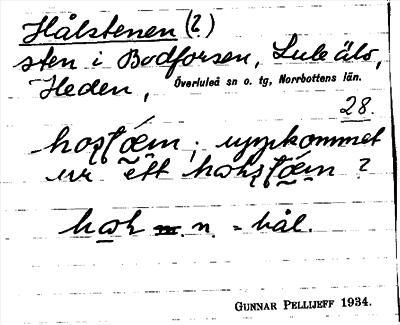 Hålstenen (?)
sten i Bodforsen, Lule älv,
Heden, Överluleå sn o. tg, Norrbottens län.
28.
uppkommet
ur ett ?
n. = hål.
GUNNAR PELLIJEFF 1934.